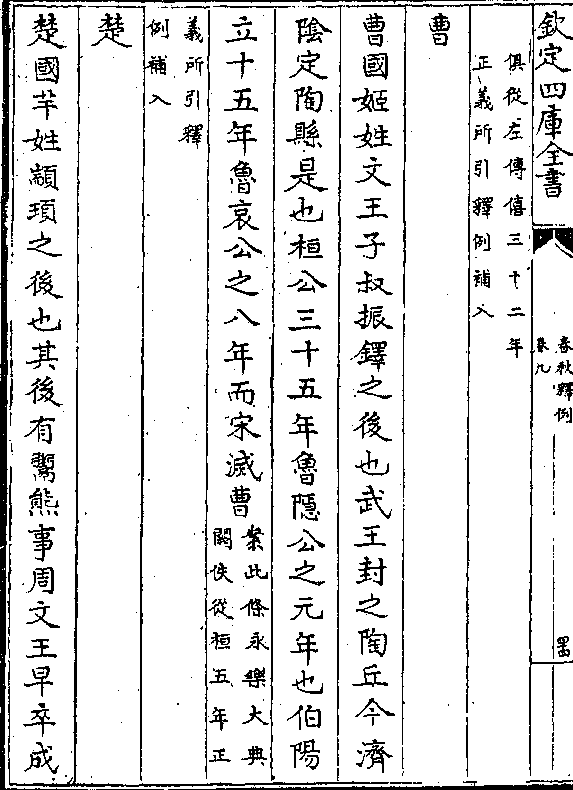 欽定四庫全書
春秋釋例
卷九
俱從左傳僖三十二年
正義所引釋例補入
曹
曹國姬姓文王子叔振鐸之後也武王封之陶丘今濟
隂定陶縣是也桓公三十五年魯隱公之元年也伯陽
立十五年魯哀公之八年而宋滅曹
案此條永樂大典
闕佚從桓五年正
義所引釋
例補入
楚
楚國芈姓顓頊之後也其後有鬻熊事周文王早卒成